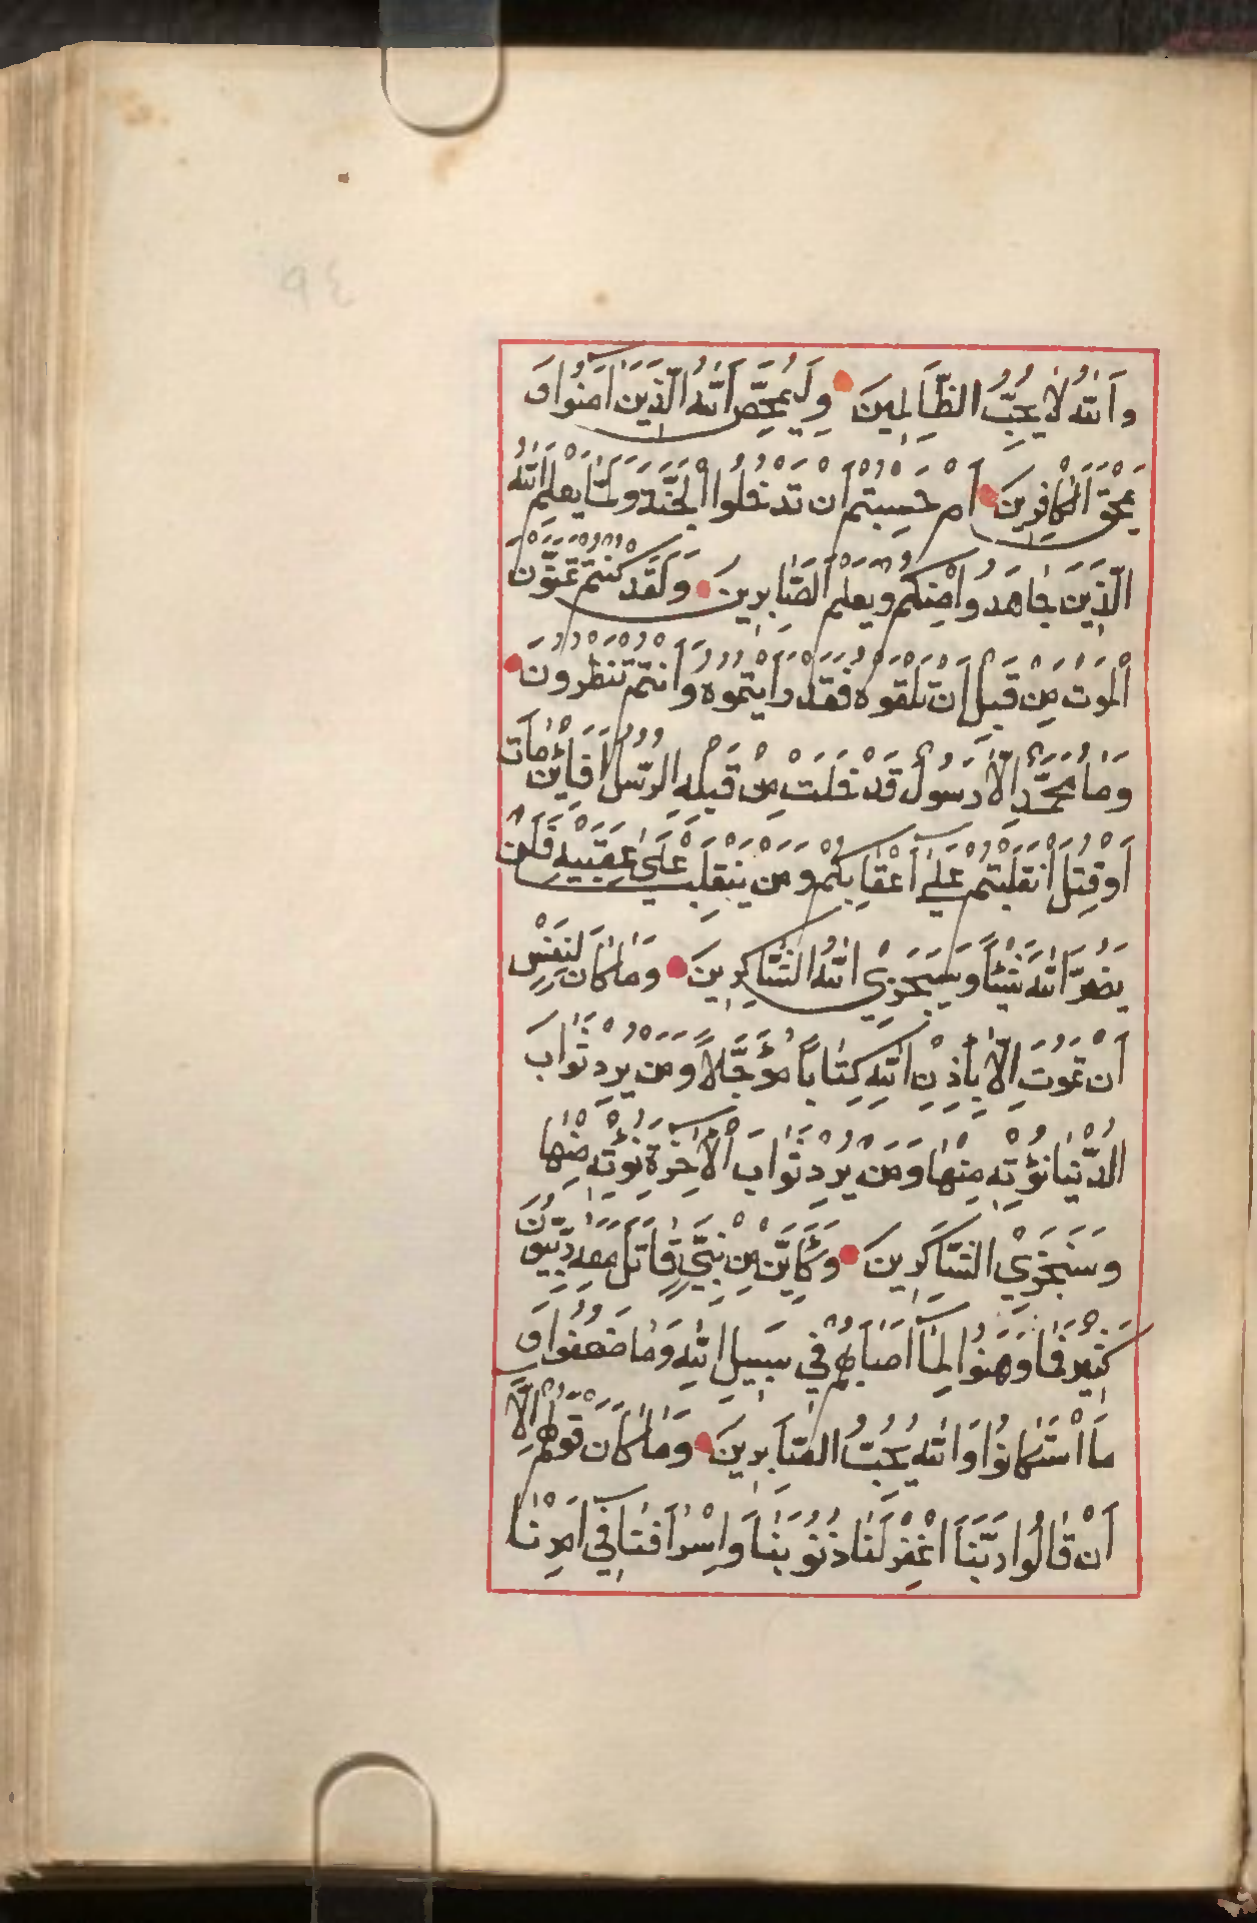 ٩٤
وَاللّٰهُ لَا يُحِبُّ الظَّالِمِينَ وَلِيُمَحِّصَ اللّٰهُ الَّذِينَ اٰمَنُوا وَ
يَمْحَقَ الْكَافِرِينَ اَمْ حَسِبْتُمْ اَنْ تَدْخُلُوا الْجَنَّةَ وَلَمَّا يَعْلَمِ اللّٰهُ
الَّذِينَ جَاهَدُوا مِنْكُمْ وَيَعْلَمَ الصَّابِرِينَ وَلَقَدْ كُنْتُمْ تَمَنَّوْنَ
الْمَوْتَ مِنْ قَبْلِ اَنْ تَلْقَوْهُ فَقَدْ رَاَيْتُمُوهُ وَاَنْتُمْ تَنْظُرُونَ
وَمَا مُحَمَّدٌ اِلَّا رَسُولٌ قَدْ خَلَتْ مِنْ قَبْلِهِ الرُّسُلُ اَفَائِنْ مَاتَ
اَوْ قُتِلَ انْقَلَبْتُمْ عَلٰى اَعْقَابِكُمْ وَمَنْ يَنْقَلِبْ عَلٰى عَقِبَيْهِ فَلَنْ
يَضُرَّ اللّٰهَ شَيْئًا وَسَيَجْزِي اللّٰهُ الشَّاكِرِينَ وَمَا كَانَ لِنَفْسٍ
اَنْ تَمُوتَ اِلَّا بِاِذْنِ اللّٰهِ كِتَابًا مُؤَجَّلًا وَمَنْ يُرِدْ ثَوَابَ
الدُّنْيَا نُؤْتِهِ مِنْهَا وَمَنْ يُرِدْ ثَوَابَ الْاٰخِرَةِ نُؤْتِهِ مِنْهَا
وَسَنَجْزِي الشَّاكِرِينَ وَكَاَيِّنْ مِنْ نَبِيٍّ قَاتَلَ مَعَهُ رِبِّيُّونَ
كَثِيرٌ فَمَا وَهَنُوا لِمَا اَصَابَهُمْ فِي سَبِيلِ اللّٰهِ وَمَا ضَعُفُوا وَ
مَا اسْتَكَانُوا وَاللّٰهُ يُحِبُّ الصَّابِرِينَ وَمَا كَانَ قَوْلَهُمْ اِلَّا
اَنْ قَالُوا رَبَّنَا اغْفِرْ لَنَا ذُنُوبَنَا وَاِسْرَافَنَا فِي اَمْرِنَا